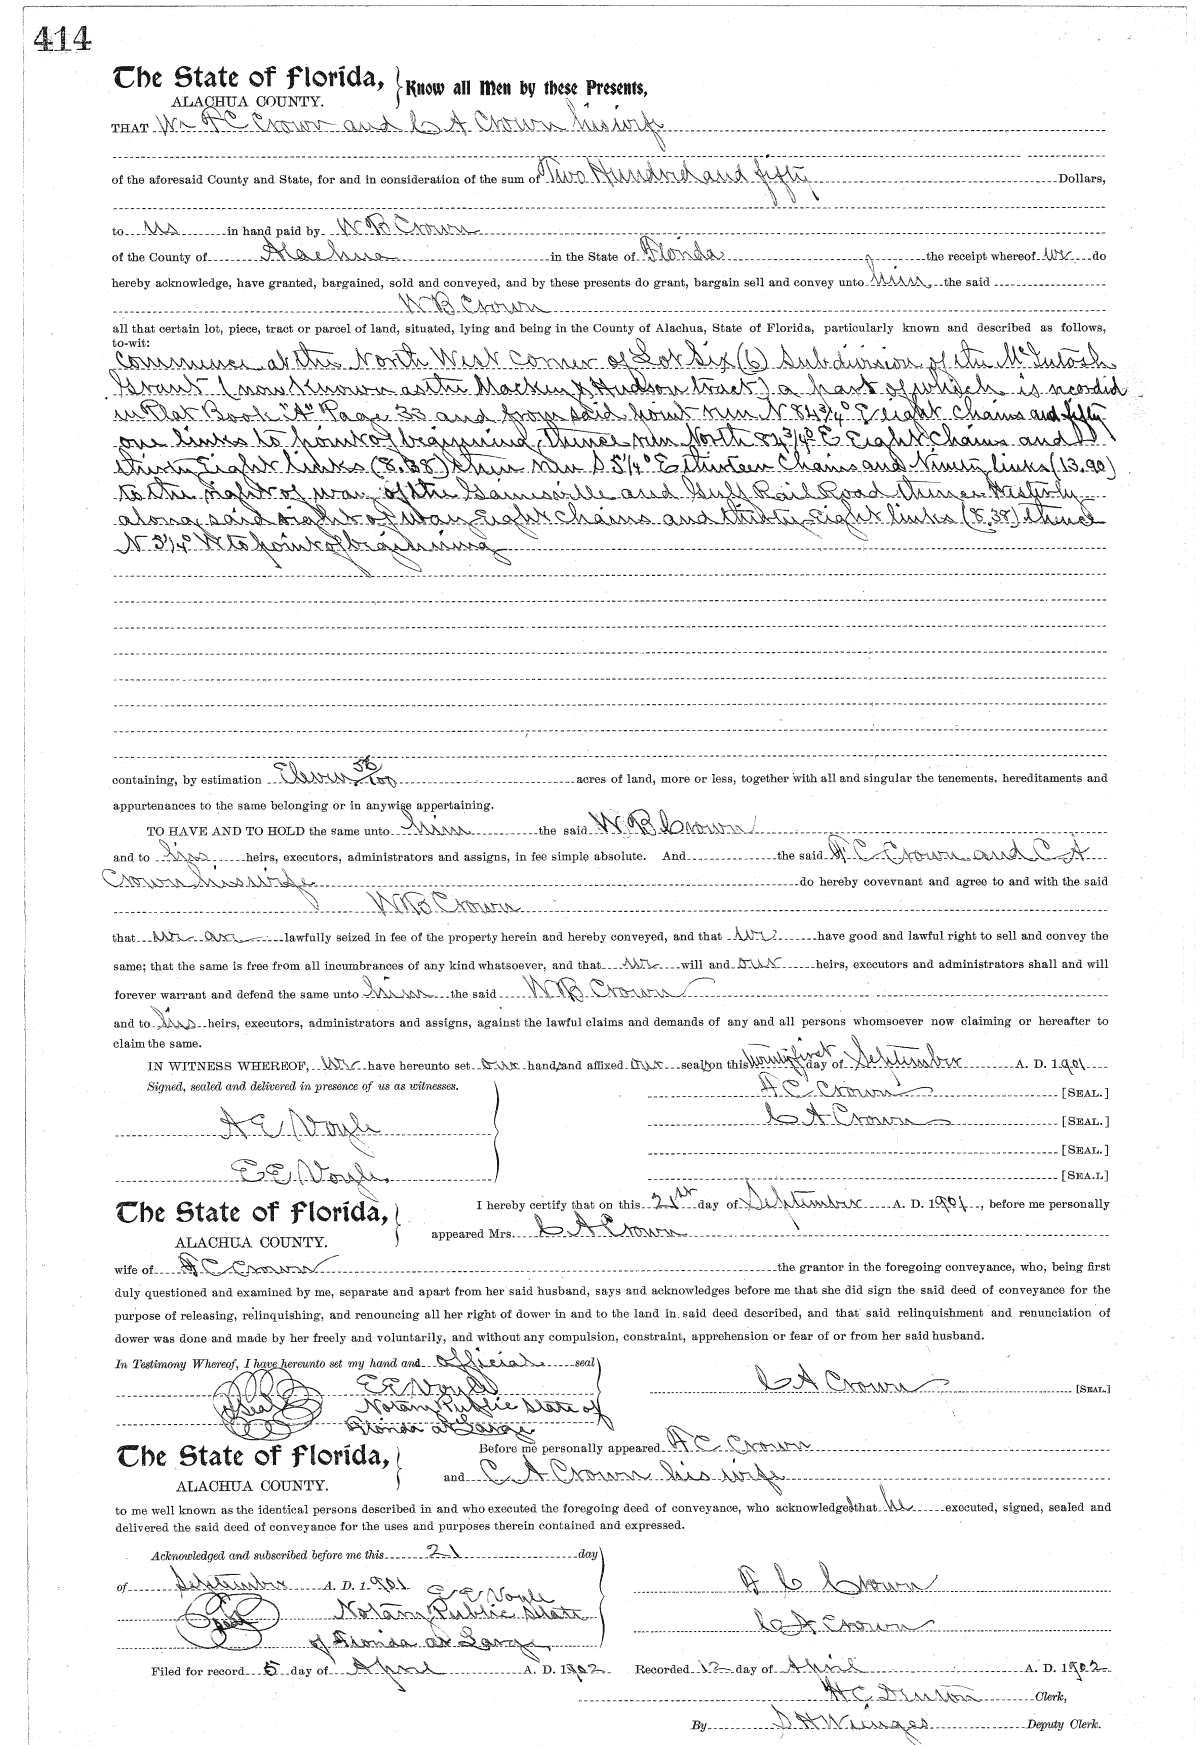 414
The State of Florida,
Know all Men by these Presents,
ALACHUA COUNTY.
THAT We F C Crown and C A Crown his wife
of the aforesaid County and State, for and in consideration of the sum of Two Hundred and fifty Dollars,
to us in hand paid by W B Crown
of the County of Alachua in the State of Florida the receipt whereof we do
hereby acknowledge, have granted, bargained, sold and conveyed, and by these presents do grant, bargain sell and convey unto him the said
W B Crown
all that certain lot, piece, tract or parcel of land, situated, lying and being in the County of Alachua, State of Florida, particularly known and described as follows,
to-wit:
Commence at the North West Corner of Lot Six (6) Subdivision of the McIntosh
Grant (now known as the Mackey & Hudson tract) a part of which is recorded
in Plat Book "A" Page 33 and from said point run N 84¾° E eight Chains and fifty
one links to point of beginning, thence run North 84¾° E Eight Chains and
thirty Eight links (8.38) then run S 5¼° E thirteen Chains and Ninety links (13.90)
to the right of way of the Gainesville and Gulf Rail Road thence Westerly
along said right of way Eight Chains and thirty Eight links (8.38) thence
N 5¼° W to point of beginning
containing, by estimation Eleven 56/100 acres of land, more or less, together with all and singular the tenements, hereditaments and
appurtenances to the same belonging or in anywise appertaining.
TO HAVE AND TO HOLD the same unto him the said W B Crown
and to his heirs, executors, administrators and assigns, in fee simple absolute. And the said F C Crown and C A
Crown his wife do hereby covevnant and agree to and with the said
W B Crown
that we are lawfully seized in fee of the property herein and hereby conveyed, and that we have good and lawful right to sell and convey the
same; that the same is free from all incumbrances of any kind whatsoever, and that we will and our heirs, executors and administrators shall and will
forever warrant and defend the same unto him the said W B Crown
and to his heirs, executors, administrators and assigns, against the lawful claims and demands of any and all persons whomsoever now claiming or hereafter to
claim the same.
IN WITNESS WHEREOF, we have hereunto set our hand and affixed our seal on this twenty first day of September A. D. 1901
Signed, sealed and delivered in presence of us as witnesses.
F C Crown [SEAL.]
A E Voyle
C A Crown [SEAL.]
[SEAL.]
E E Voyle.
[SEAL.]
The State of Florida,
ALACHUA COUNTY.
I hereby certify that on this 21st day of September A. D. 1901, before me personally
appeared Mrs. C A Crown
wife of F C Crown the grantor in the foregoing conveyance, who, being first
duly questioned and examined by me, separate and apart from her said husband, says and acknowledges before me that she did sign the said deed of conveyance for the
purpose of releasing, relinquishing, and renouncing all her right of dower in and to the land in said deed described, and that said relinquishment and renunciation of
dower was done and made by her freely and voluntarily, and without any compulsion, constraint, apprehension or fear of or from her said husband.
In Testimony Whereof, I have hereunto set my hand and official seal
E E Voyle
C A Crown [SEAL.]
Seal
Notary Public State of
Florida at Large
The State of Florida,
ALACHUA COUNTY.
Before me personally appeared F C Crown
and C A Crown his wife
to me well known as the identical persons described in and who executed the foregoing deed of conveyance, who acknowledged that he executed, signed, sealed and
delivered the said deed of conveyance for the uses and purposes therein contained and expressed.
Acknowledged and subscribed before me this 21 day
of September A. D. 1901
E E Voyle
F C Crown
Seal
Notary Public State
of Florida at Large
C A Crown
Filed for record 5 day of April A. D. 1902
Recorded 12 day of April A. D. 1902
H C Denton Clerk,
By S H Wienges Deputy Clerk.